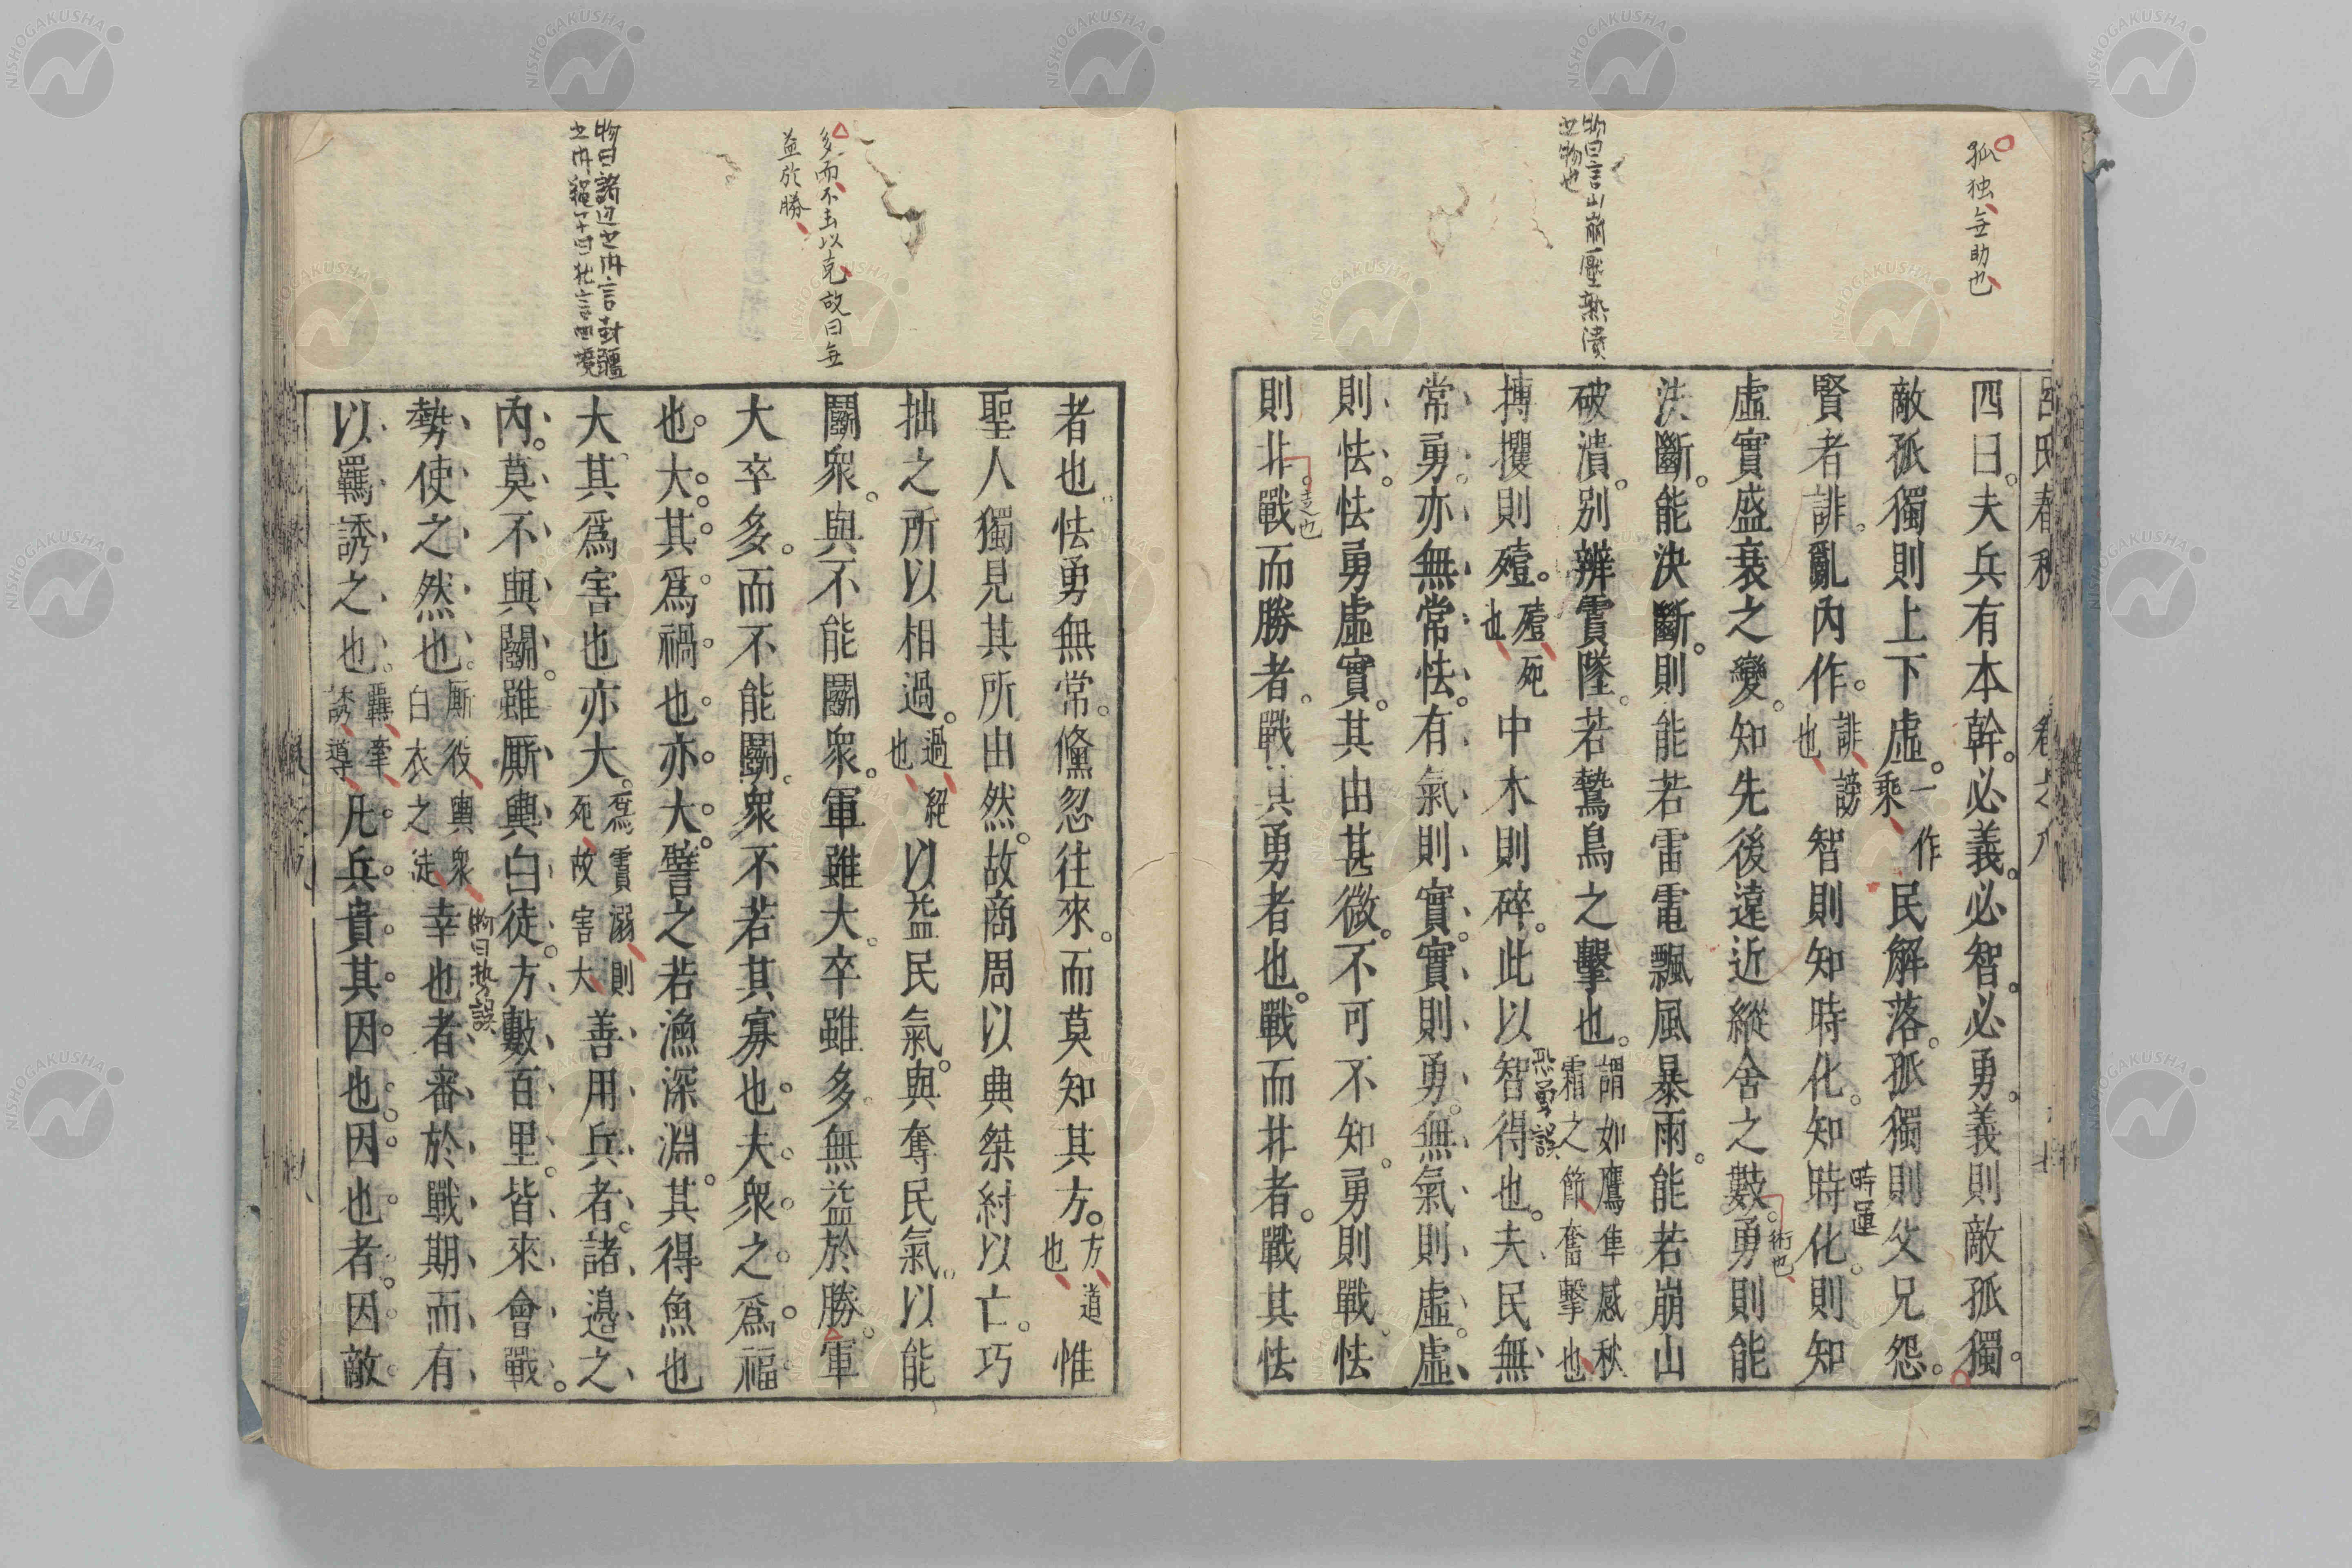 孤独無助也
物曰言山崩壓熟潰
之物也
呂氏春秋 卷之八
四曰。夫兵有本幹。必義。必智。必勇。義則敵孤獨。
敵孤獨則上下虛。一作乘民解落。孤獨則父兄怨。
賢者誹。亂內作。誹謗也智則知時化。知時化。則知
時運
虛實盛衰之變。知先後遠近縱舍之數。勇則能
術也
決斷。能決斷。則能若雷電飄風暴雨。能若崩山
破潰。別辨霣墜。若鷙鳥之擊也。謂如鷹隼感秋霜之節奮擊也
搏攫則殪。殪死也中木則碎。此以智得也。夫民無
恐勇誤
常勇。亦無常怯。有氣則實。實則勇。無氣則虛。虛
則怯。怯勇虛實。其由甚微。不可不知。勇則戰。怯
則北。戰而勝者。戰其勇者也。戰而北者。戰其怯
走也
多而不去以克故曰無
益於勝
物曰諸辺之內言封疆
之內
者也。怯勇無常。儵忽往來。而莫知其方。方道也惟
聖人獨見其所由然。故商周以興桀紂以亡。巧
拙之所以相過。過絕也以益民氣。與奪民氣。以能
鬭衆。與不能鬭衆。軍雖大。卒雖多。無益於勝。軍
大卒多。而不能鬭。衆不若其寡也。夫衆之爲福
也。大。其爲禍也。亦大。譬之若漁深淵。其得魚也
大。其爲害也亦大。爲霣溺則死故害大善用兵者。諸邉之
內。莫不與鬭。雖厮輿白徒。方數百里。皆來會戰。
勢使之然也。厮役輿衆白衣之徒幸也者。審於戰期。而有
物曰勢誤
以羈誘之也。羈牽誘導凡兵貴其因也。因也者。因敵